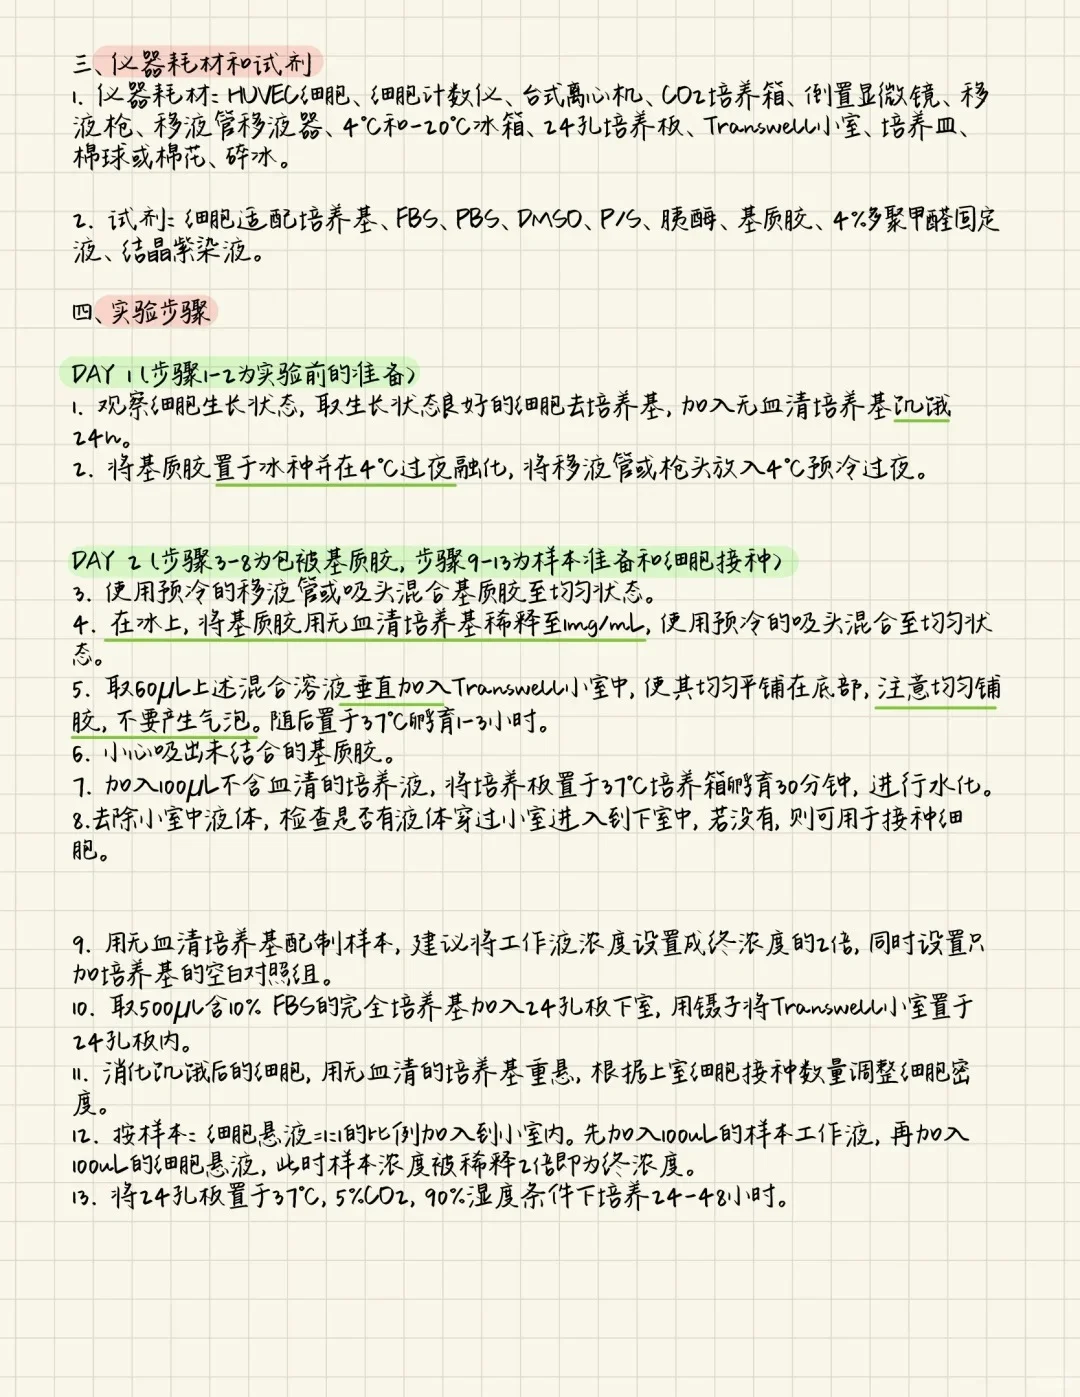 三、仪器耗材和试剂
1. 仪器耗材: HUVEC细胞、细胞计数仪、台式离心机、CO2培养箱、倒置显微镜、移
液枪、移液管移液器、4℃和-20℃冰箱、24孔培养板、Transwell小室、培养皿、
棉球或棉花、碎冰。
2. 试剂: 细胞适配培养基、FBS、PBS、DMSO、P/S、胰酶、基质胶、4%多聚甲醛固定
液、结晶紫染液。
四、实验步骤
DAY 1(步骤1-2为实验前的准备)
1. 观察细胞生长状态, 取生长状态良好的细胞去培养基, 加入无血清培养基饥饿
24h。
2. 将基质胶置于冰种并在4℃过夜融化, 将移液管或枪头放入4℃预冷过夜。
DAY 2(步骤3-8为包被基质胶, 步骤9-13为样本准备和细胞接种)
3. 使用预冷的移液管或吸头混合基质胶至均匀状态。
4. 在冰上, 将基质胶用无血清培养基稀释至1mg/mL, 使用预冷的吸头混合至均匀状
态。
5. 取60μL上述混合溶液垂直加入Transwell小室中, 使其均匀平铺在底部, 注意均匀铺
胶, 不要产生气泡。随后置于37℃孵育1-3小时。
6. 小心吸出未结合的基质胶。
7. 加入100μL不含血清的培养液, 将培养板置于37℃培养箱孵育30分钟, 进行水化。
8.去除小室中液体, 检查是否有液体穿过小室进入到下室中, 若没有, 则可用于接种细
胞。
9. 用无血清培养基配制样本, 建议将工作液浓度设置成终浓度的2倍, 同时设置只
加培养基的空白对照组。
10. 取500μL含10% FBS的完全培养基加入24孔板下室, 用镊子将Transwell小室置于
24孔板内。
11. 消化饥饿后的细胞, 用无血清的培养基重悬, 根据上室细胞接种数量调整细胞密
度。
12. 按样本: 细胞悬液=1:1的比例加入到小室内。先加入100uL的样本工作液, 再加入
100uL的细胞悬液, 此时样本浓度被稀释2倍即为终浓度。
13. 将24孔板置于37℃, 5%CO2, 90%湿度条件下培养24-48小时。